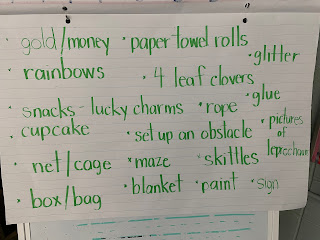 gold/money
• paper towel rolls
• glitter
• rainbows
• 4 leaf clovers
• glue
snacks - lucky charms
• rope
• cupcake
• set up an obstacle
• pictures
of
leprechaun
• net/cage
• maze
• skittles
• box/bag
• blanket
• paint
• sign